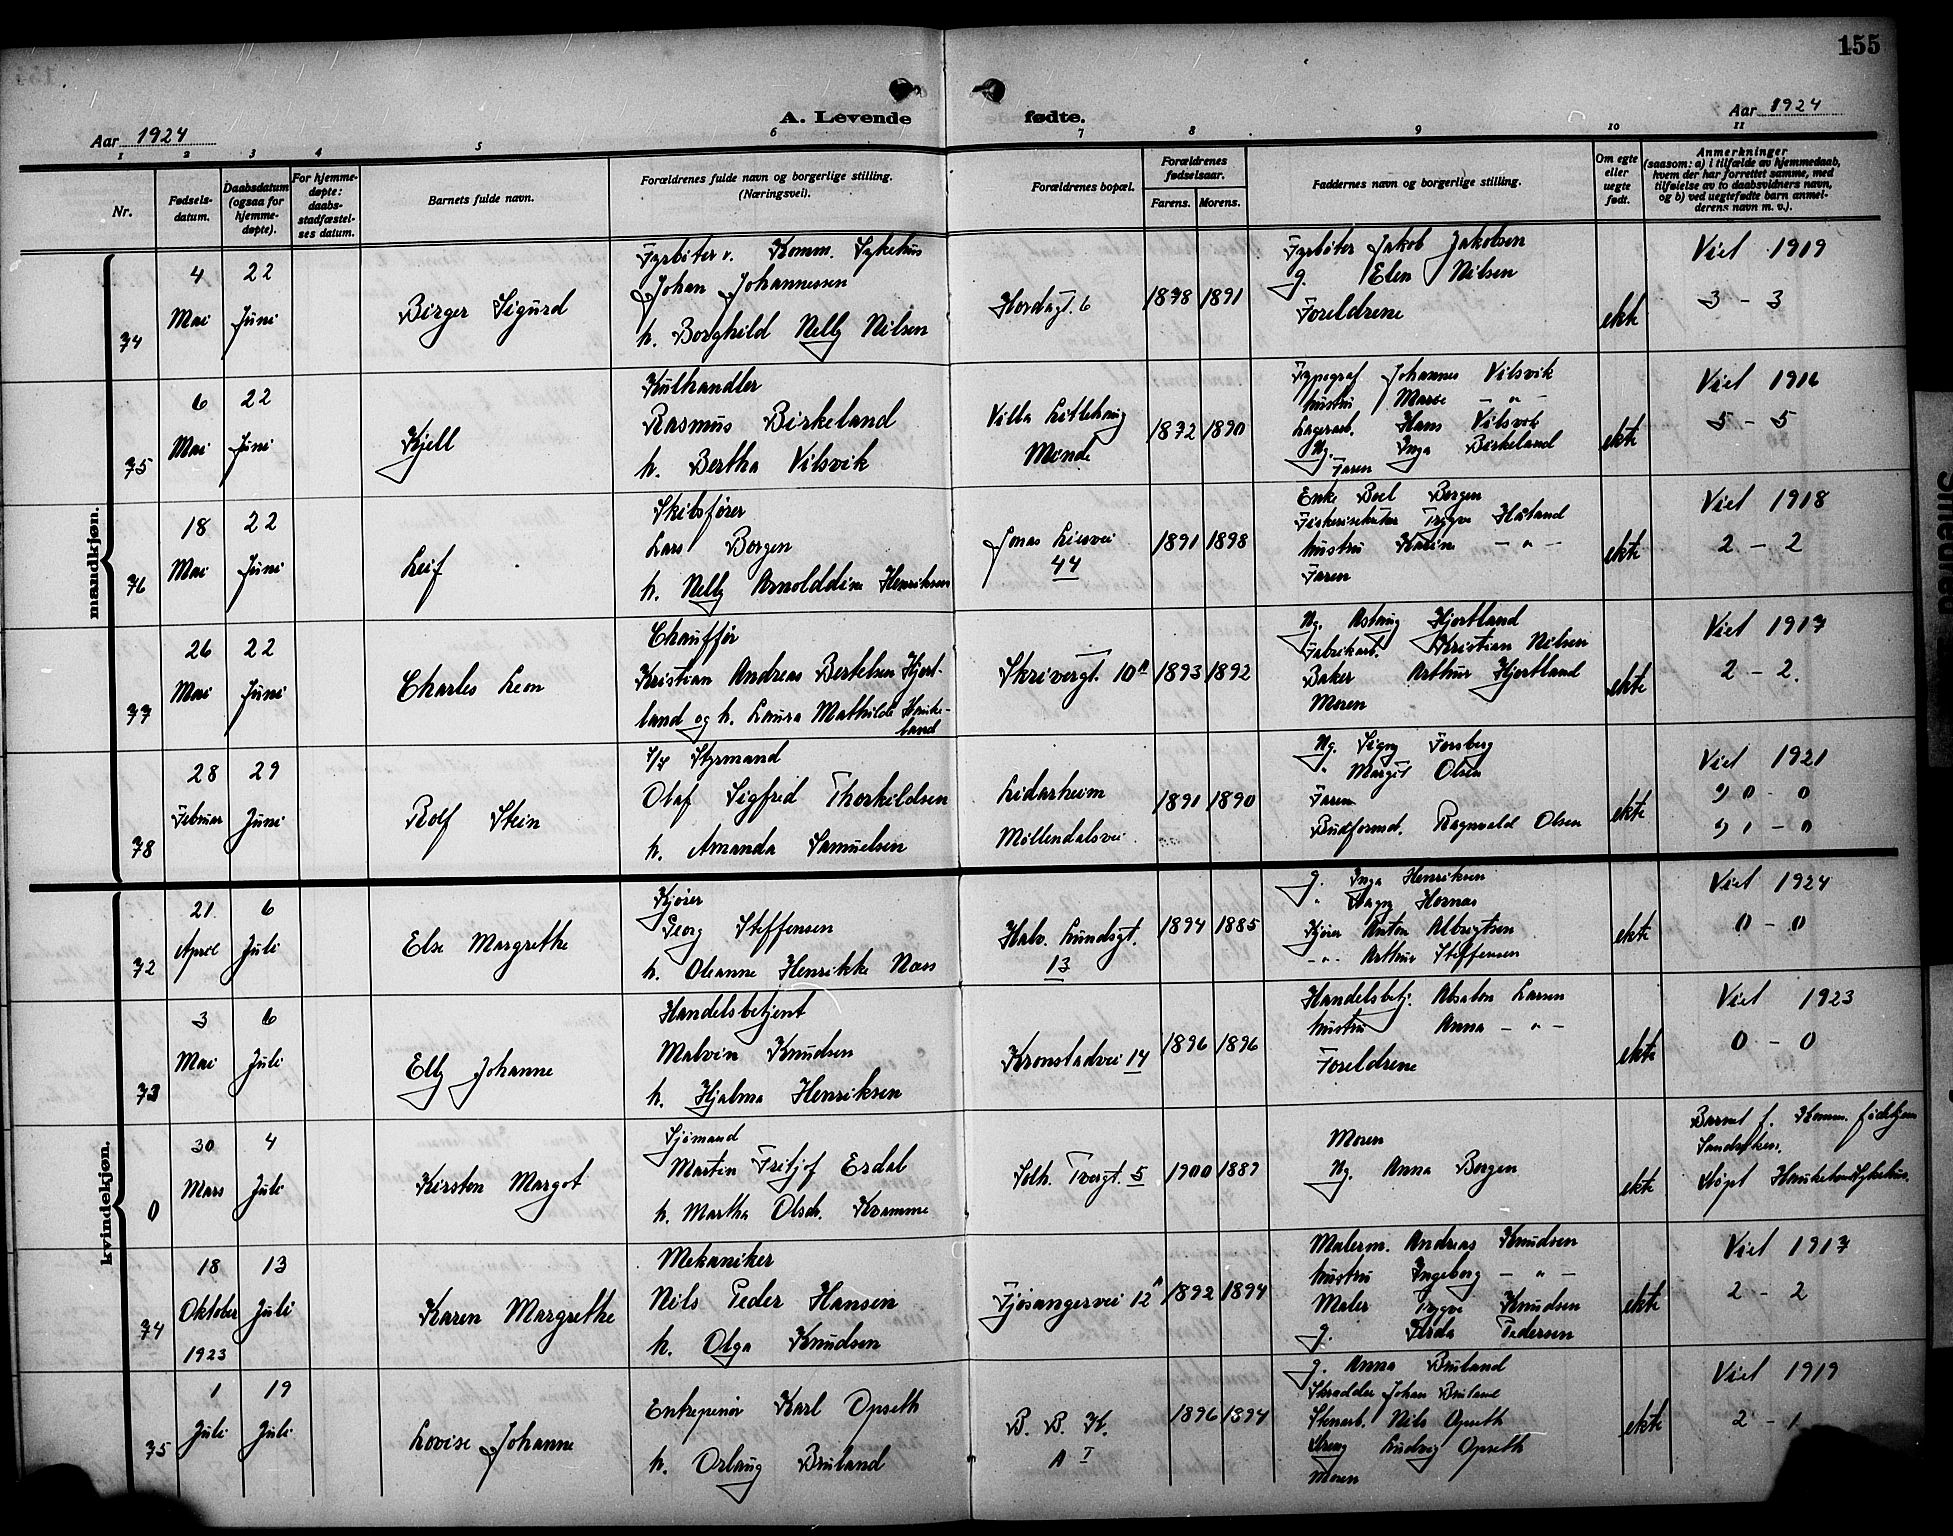 155
A. Levende fødte.
Aar 1924
Aar 1924
1 2 3 4 5 6 7 8 9 10 11
Nr.
Fødsels-
datum.
Daabsdatum
(ogsaa for
hjemme-
døpte).
For hjemme-
døpte:
daabs-
stadfæstel-
ses datum.
Barnets fulde navn.
Forældrenes fulde navn og borgerlige stilling.
(Næringsvei).
Forældrenes bopæl.
Forældrenes
fødselsaar.
Farens. Morens.
Faddernes navn og borgerlige stilling.
Om egte
eller
uegte
født.
Anmerkninger
(saasom: a) i tilfælde av hjemmedaab,
hvem der har forrettet samme, med
tilføielse av to daabsvidners navn,
og b) ved uegtefødte barn anmel-
derens navn m. v.).
mandkjøn.
74
4
Mai
22
Juni
Birger Sigurd
Fyrbøter v. Komm. Sykehus
Johan Johannessen
h. Borghild Nelly Nilsen
Hordagt. 6
1878 1891
Fyrbøter Jakob Jakobsen
g. Elen Nilsen
Foreldrene
ekte
Viet 1919
3 - 3
75
6
Mai
22
Juni
Kjell
Kulhandler
Rasmus Birkeland
h. Bertha Vilsvik
Villa Litlehaug
Minde
1872 1890
Typograf Johannes Vilsvik
hustru Marie - " -
Lagerarb. Hans Vilsvik
Ug. Inga Birkeland
Faren
ekte
Viet 1916
5 - 5
76
18
Mai
22
Juni
Leif
Skibsfører
Lars Borgen
h. Nelly Arnolddine Henriksen
Jonas Liesvei
44
1891 1898
Enke Boel Borgen
Trygve Haland
hustru Karin - " -
Faren
ekte
Viet 1918
2 - 2
77
26
Mai
22
Juni
Charles Leon
Chauffør
Kristian Andreas Bertelsen Hjort-
land og h. Laura Mathilde Hauke-
land
Skrivergt. 10a
1893 1892
Ug. Astrug Hjortland
Fabrikarb. Kristian Nilsen
Baker Arthur Hjortland
Moren
ekte
Viet 1917
2 - 2.
78
28
Februar
29
Juni
Rolf Stein
Styrmand
Olaf Sigfred Thorkildsen
h. Amanda Samuelsen
Lidarheim
Møllendalsvei
1891 1890
Ug. Signy Forsberg
" Margit Olsen
Faren
Budformd. Ragnvald Olsen
ekte
Viet 1921
0 - 0
1 - 0
kvindekjøn.
72
21
April
6
Juli
Else Margrethe
Kjører
Georg Steffensen
h. Oleanne Henrikke Næss
Halv. Lundsgt.
13
1894 1885
g. Inga Henriksen
" Dagny Hornas
Kjører Anton Albregtsen
- " - Arthur Steffensen
ekte
Viet 1924
0 - 0
73
3
Mai
6
Juli
Elly Johanne
Handelsbetjent
Malvin Knudsen
h. Hjalma Henriksen
Kronstadvei 14
1896 1896
Handelsbetj. Absalon Larsen
hustru Anna - " -
Foreldrene
ekte
Viet 1923
0 - 0
0
30
Mars
4
Juli
Kirsten Margot
Sjømand
Martin Fritjof Erdal
h. Martha Olsdr. Kvamme
Solh. Tvergt. 5
1900 1887
Moren
Ug. Anna Borgen
ekte
Barnet f. Komm. fødehjem
Sandviken.
Døpt Haukeland Sykehus.
74
18
Oktober
1923
13
Juli
Karen Margrethe
Mekaniker
Nils Peder Hansen
h. Olga Knudsen
Fjøsangervei 12a
1892 1894
Malerm. Andreas Knudsen
hustru Ingeborg - " -
Maler Trygve Knudsen
g. Gerda Pedersen
ekte
Viet 1917
2 - 2
75
1
Juli
19
Juli
Lovise Johanne
Entrepenør Karl Opseth
h. Oslaug Bruland
B. B. K.
A I
1896 1894
g. Anna Bruland
Skrædder Johan Bruland
Stenarb. Nils Opseth
Ludvig Opseth
Moren
ekte
Viet 1919
2 - 1